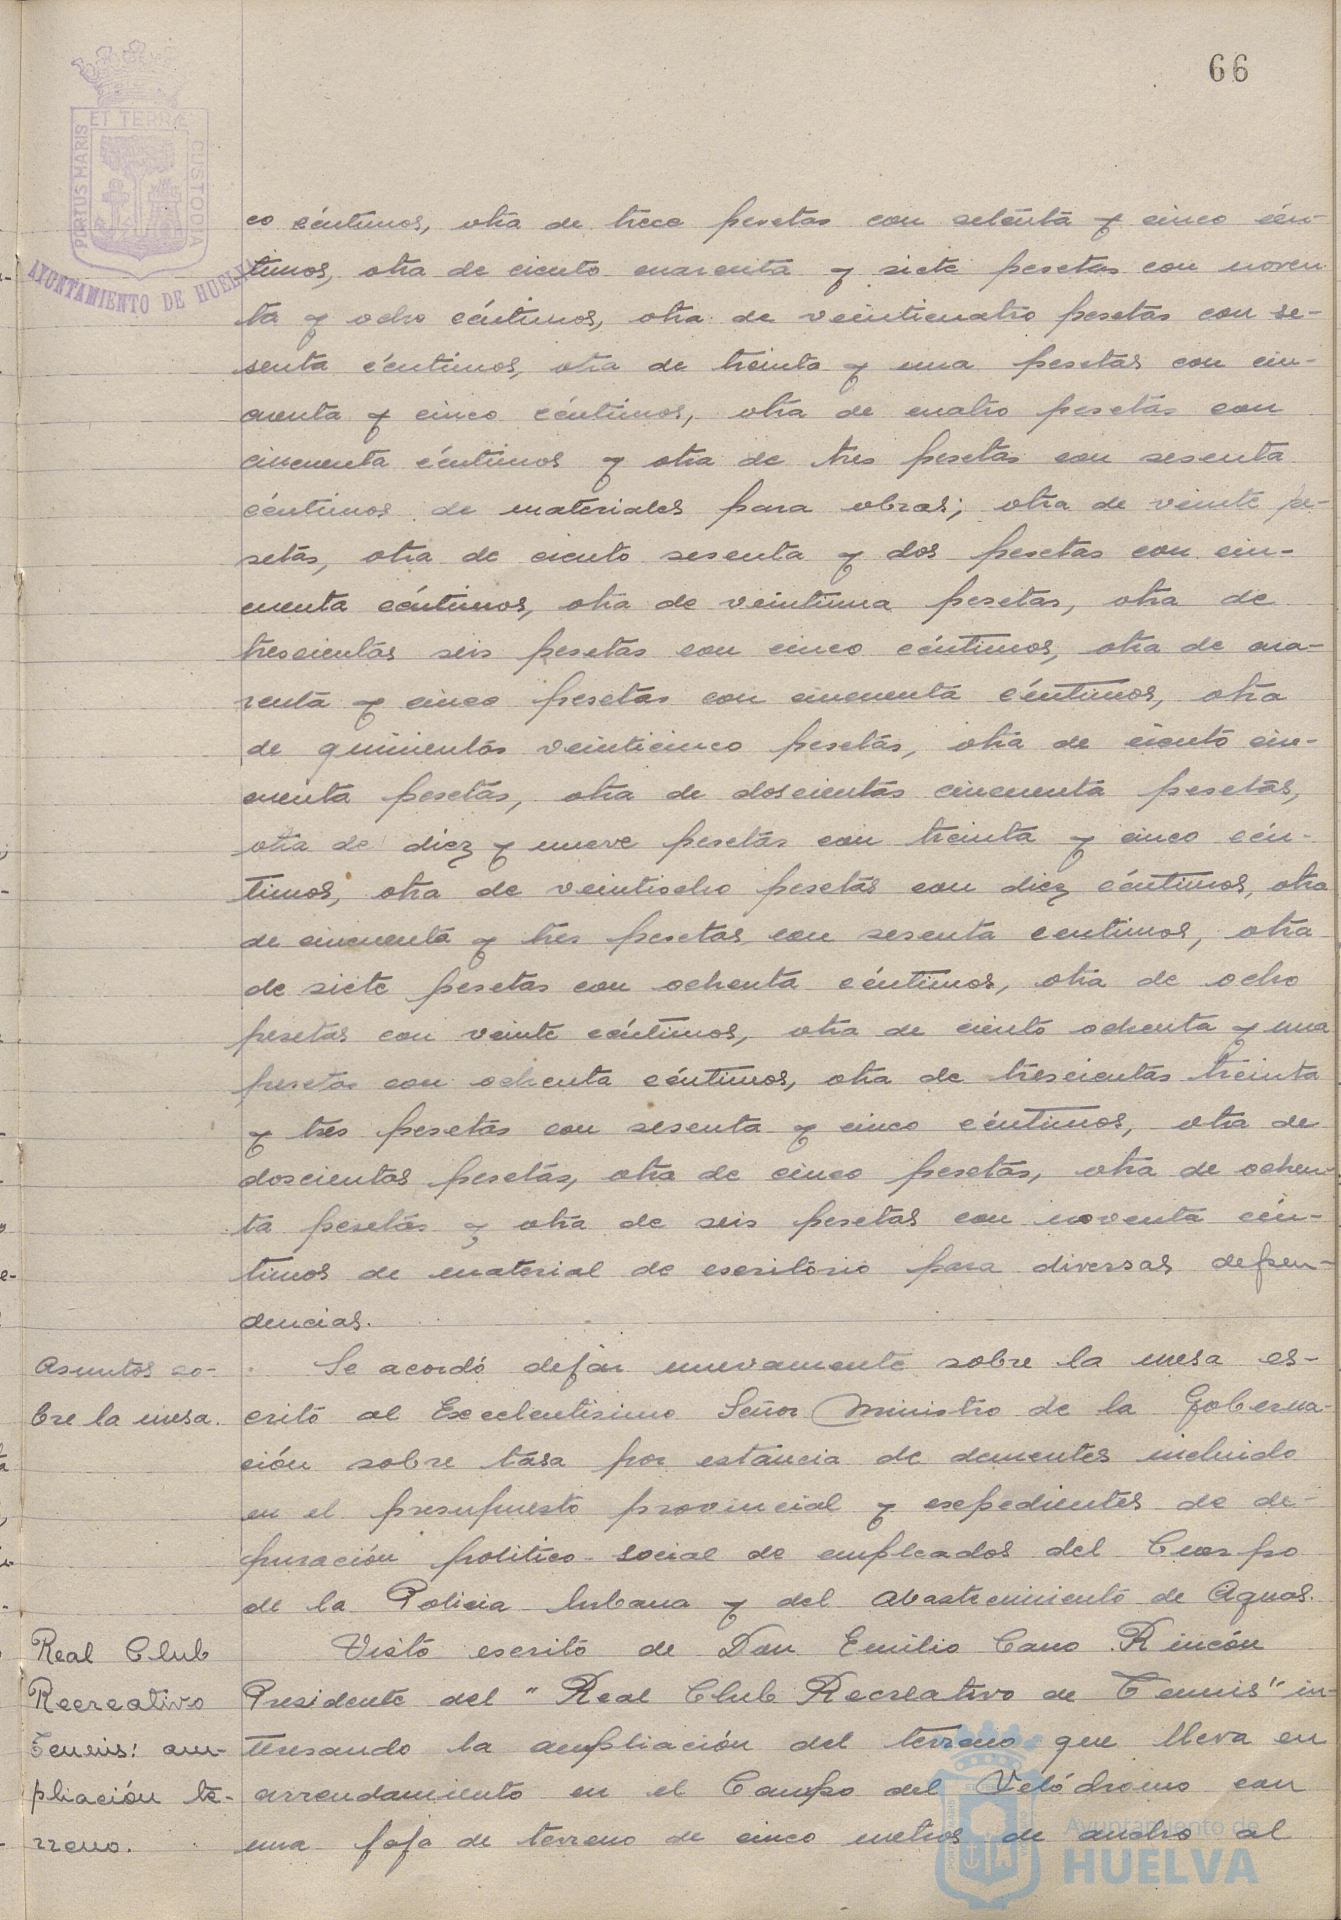 66
PORTUS MARIS ET TERRÆ CUSTODIA
AYUNTAMIENTO DE HUELVA
co céntimos, otra de trece pesetas con setenta y cinco cén-
timos, otra de ciento cuarenta y siete pesetas con noven
ta y ocho céntimos, otra de veinticuatro pesetas con se-
senta céntimos, otra de treinta y una pesetas con cin-
cuenta y cinco céntimos, otra de cuatro pesetas con
cincuenta céntimos y otra de tres pesetas con sesenta
céntimos de materiales para obras; otra de veinte pe-
setas, otra de ciento sesenta y dos pesetas con cin-
cuenta céntimos, otra de veintiuna pesetas, otra de
trescientas seis pesetas con cinco céntimos, otra de cua-
renta y cinco pesetas con cincuenta céntimos, otra
de quinientas veinticinco pesetas, otra de ciento cin-
cuenta pesetas, otra de doscientas cincuenta pesetas,
otra de diez y nueve pesetas con treinta y cinco cén-
timos, otra de veintiocho pesetas con diez céntimos, otra
de cincuenta y tres pesetas con sesenta centimos, otra
de siete pesetas con ochenta céntimos, otra de ocho
pesetas con veinte céntimos, otra de ciento ochenta y una
pesetas con ochenta céntimos, otra de trescientas treinta
y tres pesetas con sesenta y cinco céntimos, otra de
doscientas pesetas, otra de cinco pesetas, otra de ochen-
ta pesetas y otra de seis pesetas con noventa cén-
timos de material de escritorio para diversas depen-
dencias.
Asuntos so-
bre la mesa.
Se acordó dejar nuevamente sobre la mesa es-
crito al Excelentisimo Señor Ministro de la Goberna-
ción sobre tasa por estancia de dementes incluido
en el presupuesto provincial y expedientes de de-
puración politico-social de empleados del Cuerpo
de la Policia Urbana y del Abastecimiento de Aguas.
Real Club
Recreativo
Tennis: am-
pliación te-
rreno.
Visto escrito de Don Emilio Cano Rincón
Presidente del "Real Club Recreativo de Tennis" in-
teresando la ampliación del terreno que lleva en
arrendamiento en el Campo del Velódromo con
una faja de terreno de cinco metros de ancho al
Ayuntamiento de
HUELVA